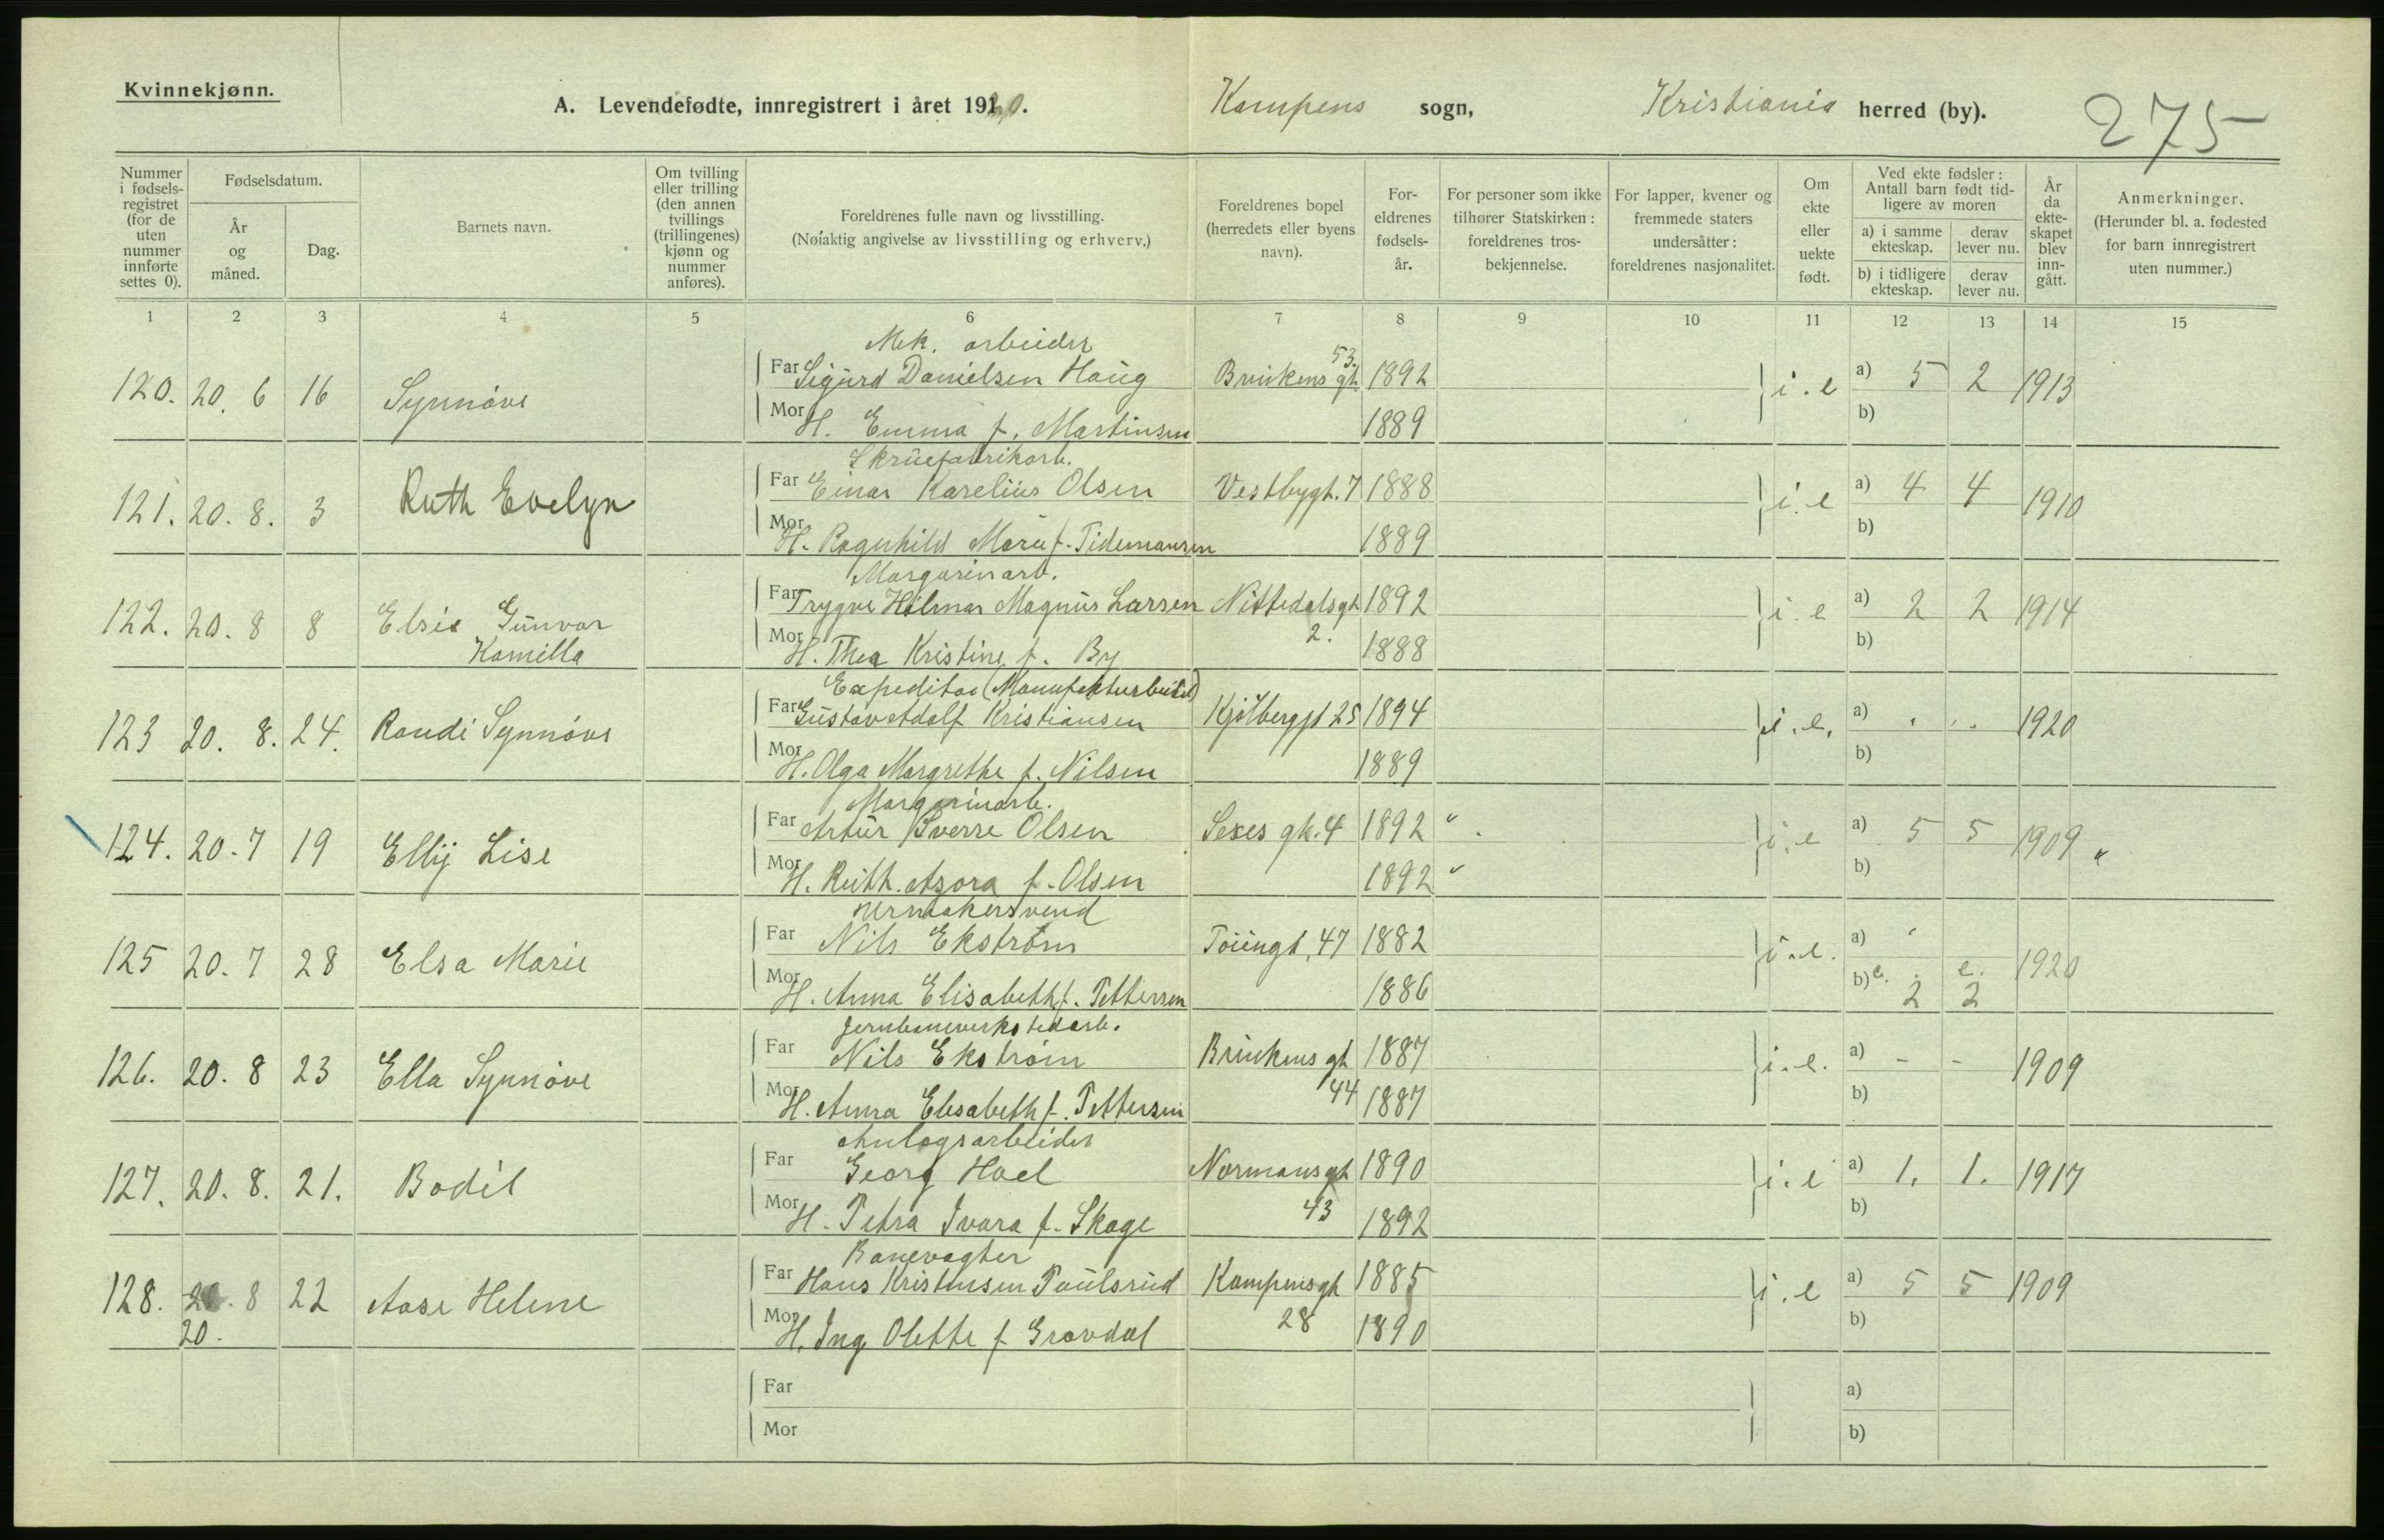 Kvinnekjønn.
A. Levendefødte, innregistrert i året 1920.
Kampens sogn,
Kristiania herred (by).
275
Nummer i fødsels-registret (for de uten nummer innførte settes 0).
Fødselsdatum.
År og måned.
Dag.
Barnets navn.
Om tvilling eller trilling (den annen tvillings (trillingenes) kjønn og nummer anføres).
Foreldrenes fulle navn og livsstilling.
(Nøiaktig angivelse av livsstilling og erhverv.)
Foreldrenes bopel (herredets eller byens navn).
For-eldrenes fødsels-år.
For personer som ikke tilhører Statskirken: foreldrenes tros-bekjennelse.
For lapper, kvener og fremmede staters undersåtter: foreldrenes nasjonalitet.
Om ekte eller uekte født.
Ved ekte fødsler: Antall barn født tid-ligere av moren
a) i samme ekteskap.
derav lever nu.
b) i tidligere ekteskap.
derav lever nu.
År da ekte-skapet blev inn-gått.
Anmerkninger.
(Herunder bl. a. fødested for barn innregistrert uten nummer.)
1 2 3 4 5 6 7 8 9 10 11 12 13 14 15
Mek. arbeider
120. 20. 6 16 Synnöve Far Sigurd Danielsen Haug Brinkens gt. 53. 1892 i. e a) 5 2 1913
Mor H. Emma f. Martinsen 1889 b)
Skruefabrikarb.
121. 20. 8. 3 Ruth Evelyn Far Einar Karelius Olsen Vestbygt. 7 1888 i. e a) 4 4 1910
Mor H. Ragnhild Marie f. Tidemansen 1889 b)
Margarinarb.
122. 20. 8 8 Elsie Gunvor Far Trygve Hilmar Magnus Larsen Nittedalsgt 1892 i. e a) 2 2 1914
Kamilla Mor H. Thea Kristine f. By 2. 1888 b)
Expeditør (Manufakturbutik)
123 20. 8. 24. Randi Synnöve Far Gustav Adolf Kristiansen Kjölberggt 25 1894 i. e. a) . .. 1920
Mor H. Olga Margrethe f. Nilsen 1889 b)
Margarinarb.
124. 20. 7 19 Elly Lise Far Artur Sverre Olsen Sexes gt. 4 1892 " . i. e a) 5 5 1909 "
Mor H. Ruth Azora f. Olsen 1892 " b)
Urmakersvend
125 20. 7 28 Elsa Marie Far Nils Ekström Töiengt. 47 1882 i. e. a) 1920
Mor H. Anna Elisabeth f. Pettersen 1886 b) e. 2 e. 2
Jernbaneverkstedarb.
126. 20. 8 23 Ella Synnöve Far Nils Ekström Brinkens gt 1887 i. e. a) - - 1909
Mor H. Anna Elisabeth f. Pettersen 44 1887 b)
Anlegsarbeider
127. 20. 8. 21. Bodil Far Georg Hoel Normansgt 1890 i. e a) 1. 1. 1917
Mor H. Petra Ivara f. Skage 43 1892 b)
Banevagter
128. 20. 8 22 Aase Helene Far Hans Kristensen Paulsrud Kampensgt 1885 i. e a) 5 5 1909
20. Mor H. Inga Olette f Gravdal 28 1890 b)
Far a)
Mor b)